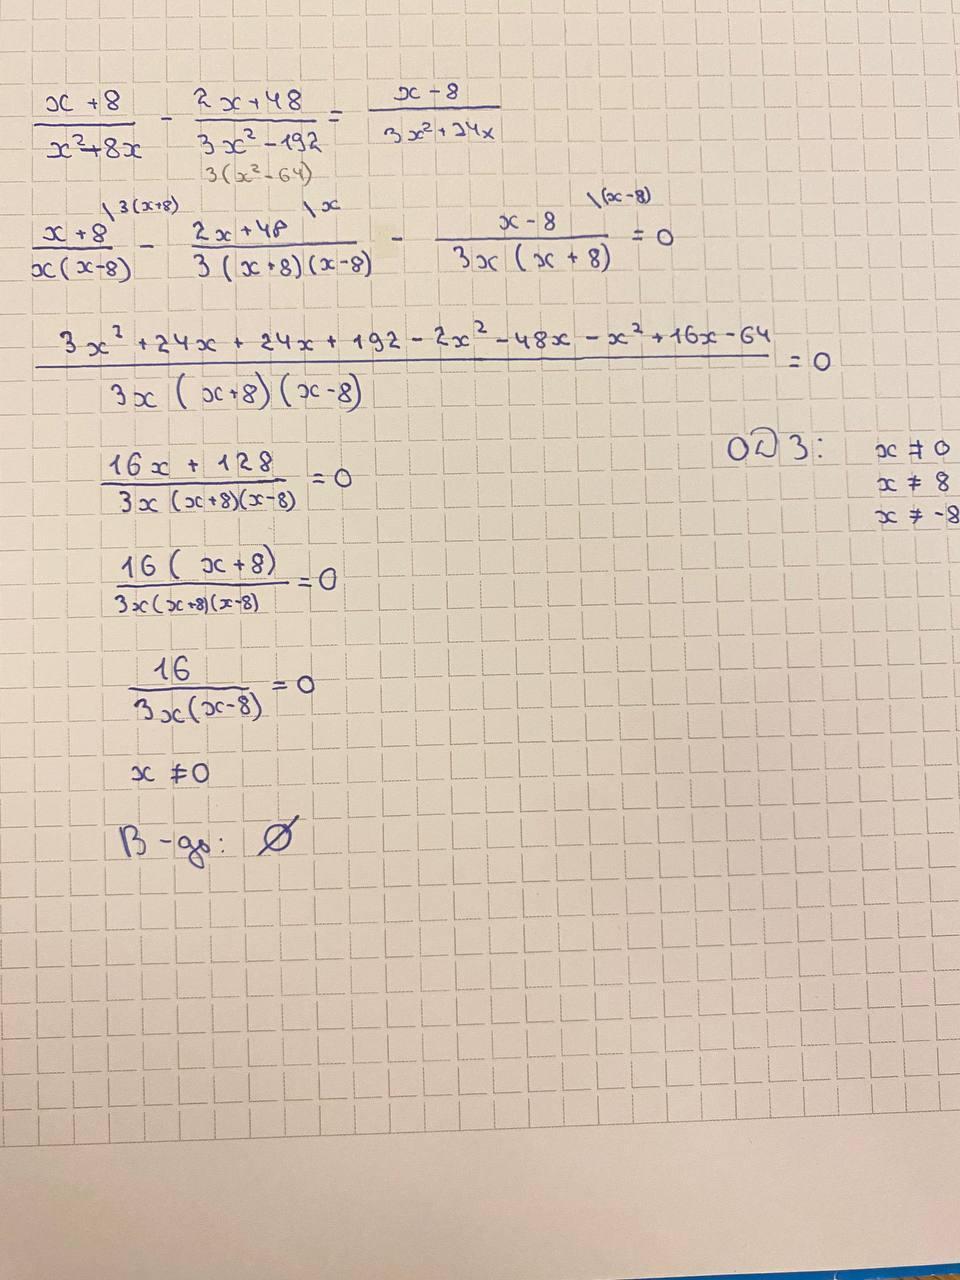 (x+8)/(x²+8x) - (2x+48)/(3x²-192) = (x-8)/(3x²+24x)
3(x²-64)
\3(x+8) \x \(x-8)
(x+8)/(x(x-8)) - (2x+48)/(3(x+8)(x-8)) - (x-8)/(3x(x+8)) = 0
(3x²+24x+24x+192-2x²-48x-x²+16x-64)/(3x(x+8)(x-8)) = 0
(16x+128)/(3x(x+8)(x-8)) = 0
ОДЗ: x≠0
x≠8
x≠-8
(16(x+8))/(3x(x+8)(x-8)) = 0
16/(3x(x-8)) = 0
x≠0
В-дь: ∅